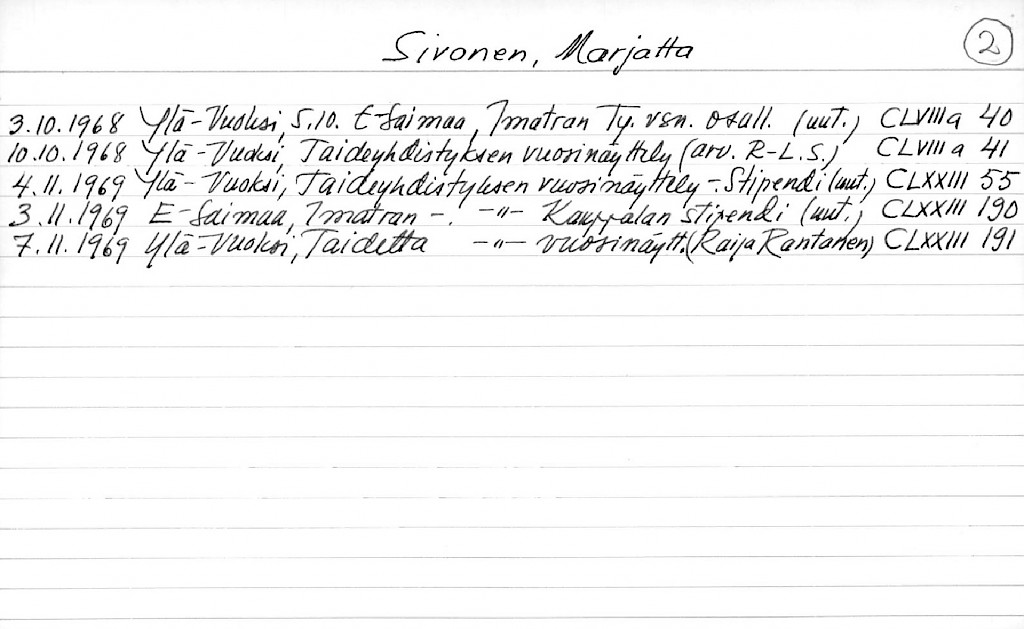 Sivonen, Marjatta 2
3.10.1968 Ylä-Vuoksi, 5.10. E-Saimaa, Imatran Ty. vsn. osall. (uut.) CLVIIIa 40
10.10.1968 Ylä-Vuoksi, Taideyhdistyksen vuosinäyttely (arv. R-L.S.) CLVIIIa 41
4.11.1969 Ylä-Vuoksi, Taideyhdistyksen vuosinäyttely - Stipendi (uut.) CLXXIII 55
3.11.1969 E-Saimaa, Imatran -"- Kauppalan stipendi (uut.) CLXXIII 190
7.11.1969 Ylä-Vuoksi, Taidetta -"- vuosinäytt. (Raija Rantanen) CLXXIII 191